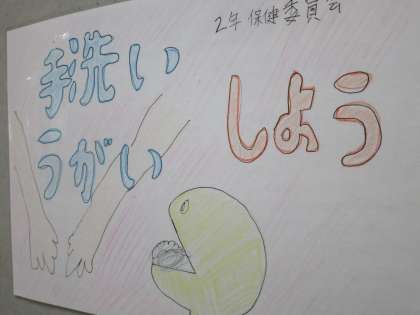 2年 保健委員会
手洗い
うがい
しよう